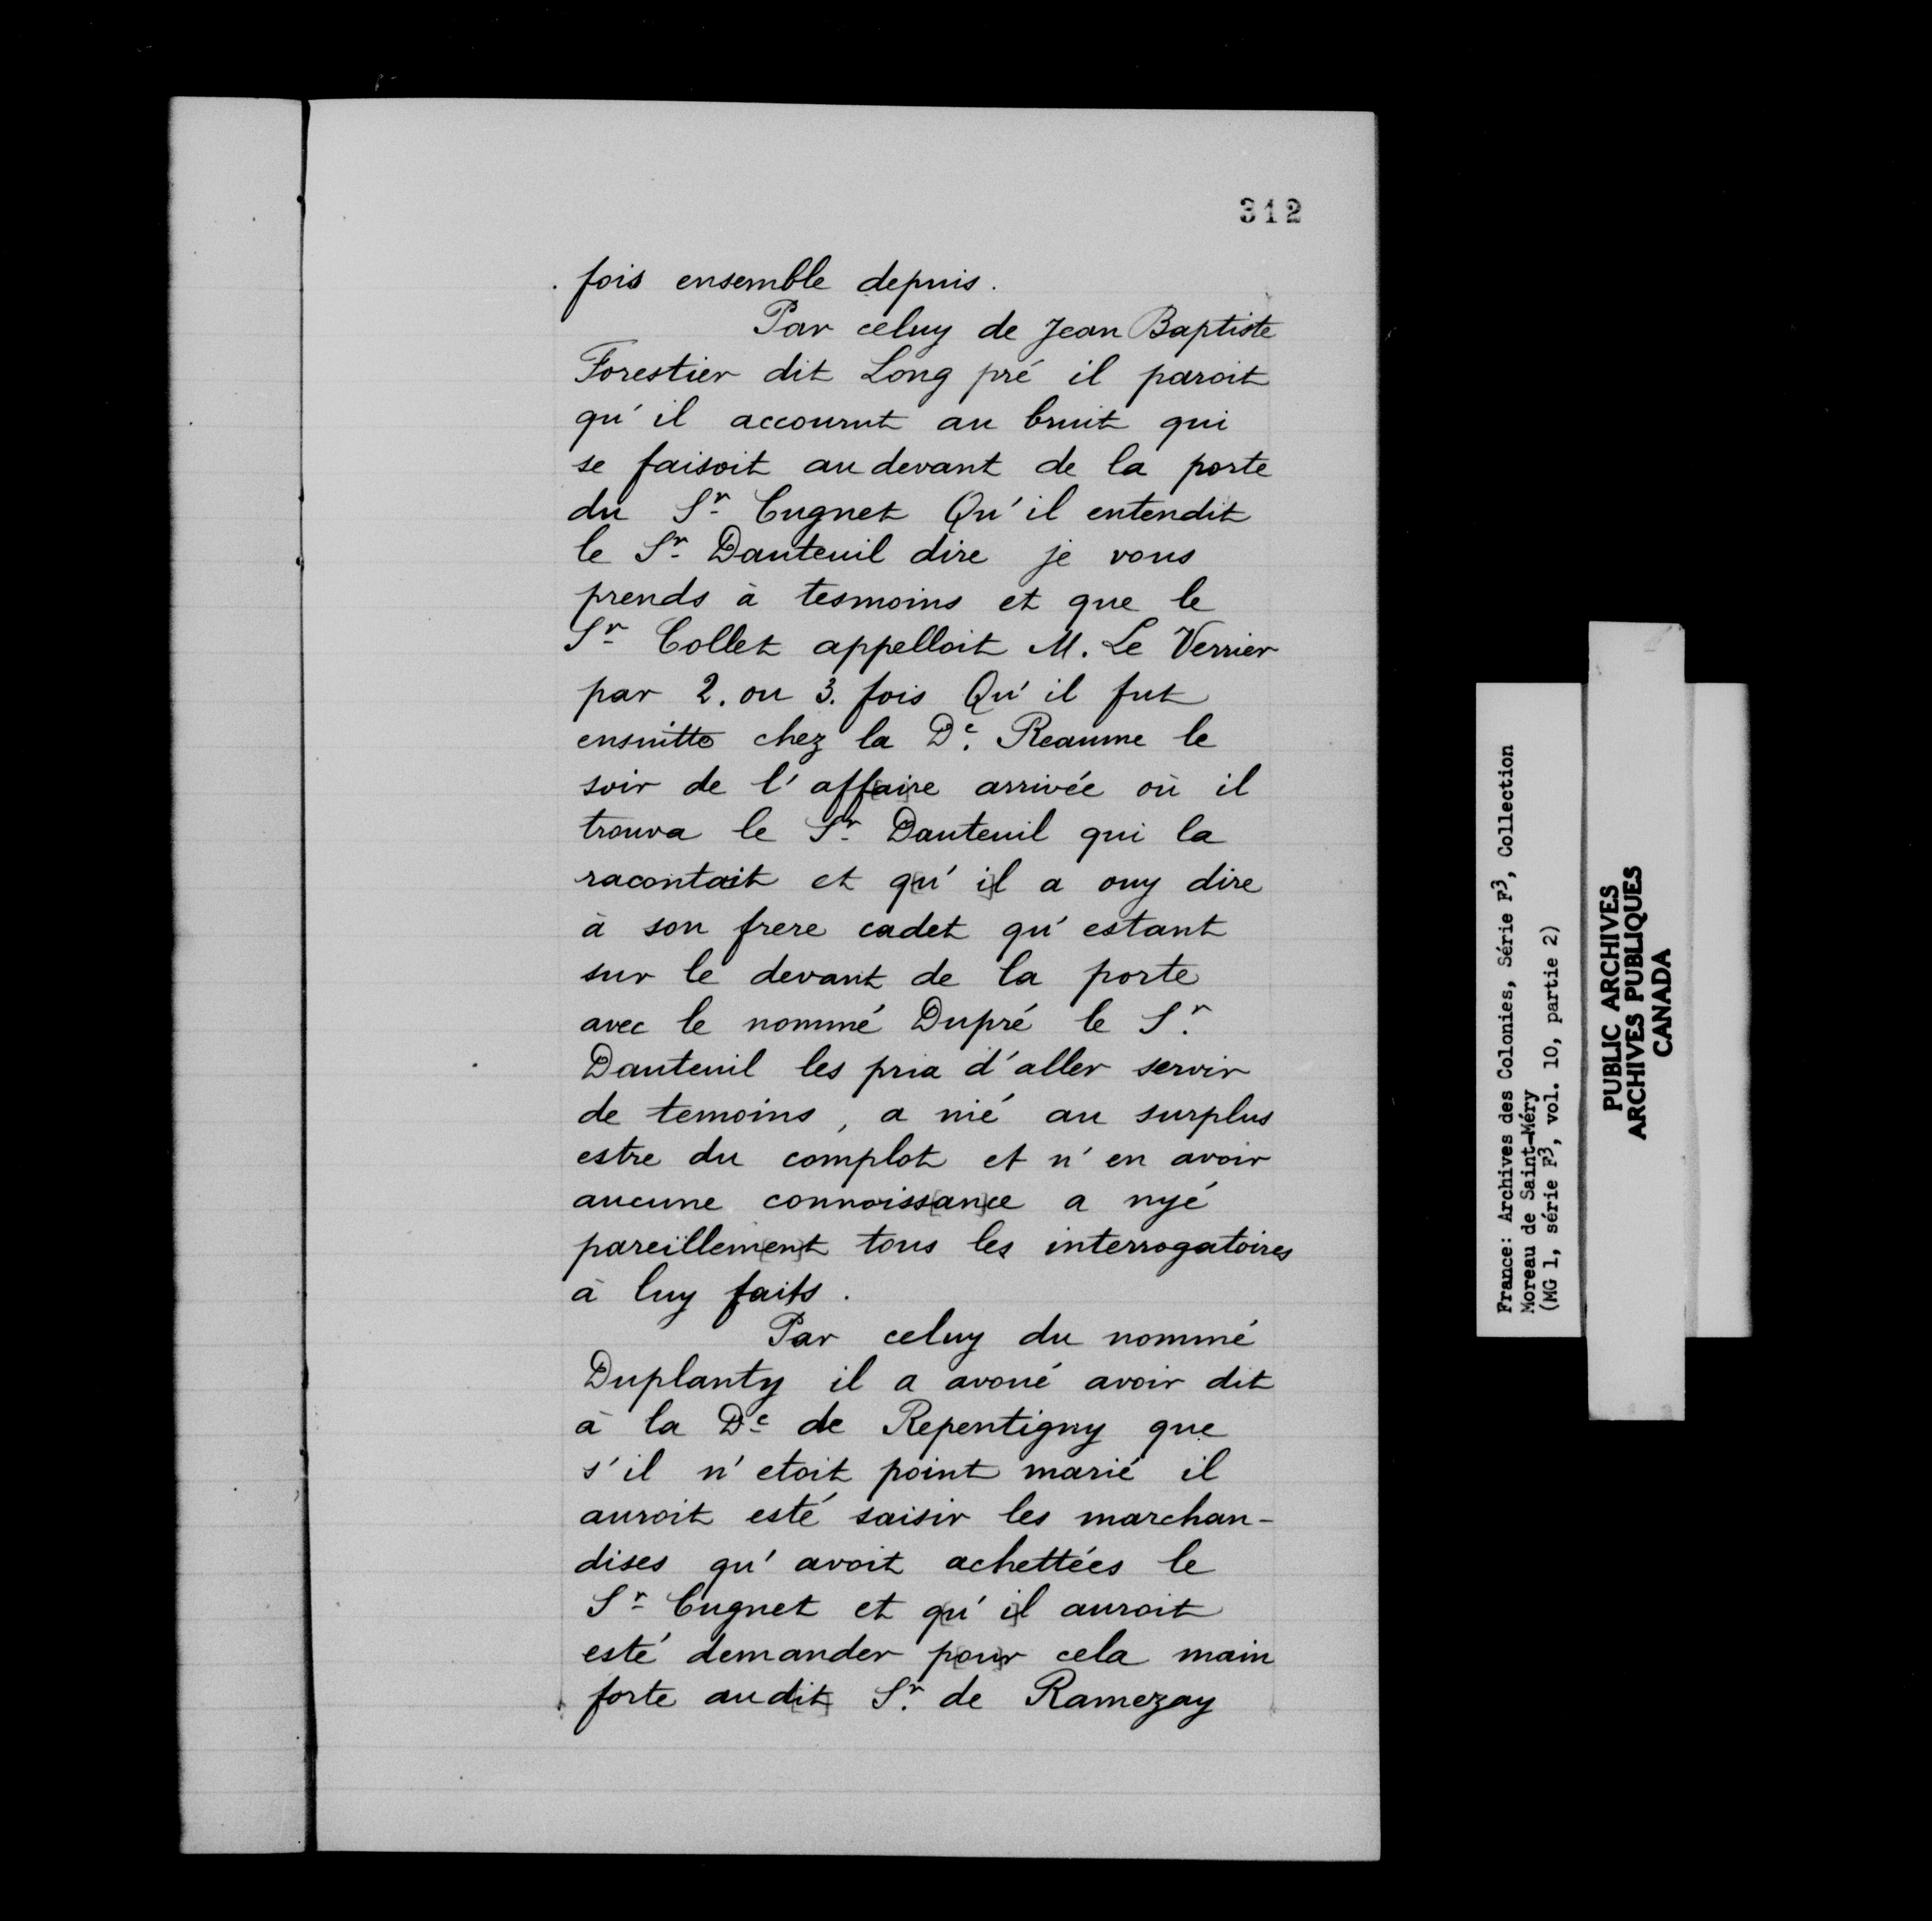 312
fois ensemble depuis.
Par celuy de Jean Baptiste
Forestier dit Long pré il paroit
qu'il accourut au bruit qui
se faisoit au devant de la porte
du Sr Cugnet Qu'il entendit
le Sr Dauteuil dire je vous
prends à tesmoins et que le
Sr Collet appelloit M. Le Verrier
par 2. ou 3. fois Qu'il fut
ensuitte chez la De. Reaume le
soir de l'aff[ai]re arrivée où il
trouva le Sr Dauteuil qui la
racontait et q[u' i]l a ouy dire
à son frere cadet qu'estant
sur le devant de la porte
avec le nommé Dupré le Sr.
Dauteuil les pria d'aller servir
de temoins, a nié au surplus
estre du complot et n'en avoir
aucune connoiss[an]ce a nyé
pareïllem[en]t tous les interrogatoires
à luy faits.
Par celuy du nommé
Duplanty il a avoué avoir dit
à la De de Repentigny que
s'il n'etoit point marié il
auroit esté saisir les marchan-
dises qu'avoit achettées le
Sr Cugnet et q[u' i]l auroit
esté demander p[ou]r cela main
forte aud[it] Sr. de Ramezay
France: Archives des Colonies, Série F3, Collection
Moreau de Saint-Méry
(MG 1, série F3, vol. 10, partie 2)
PUBLIC ARCHIVES
ARCHIVES PUBLIQUES
CANADA